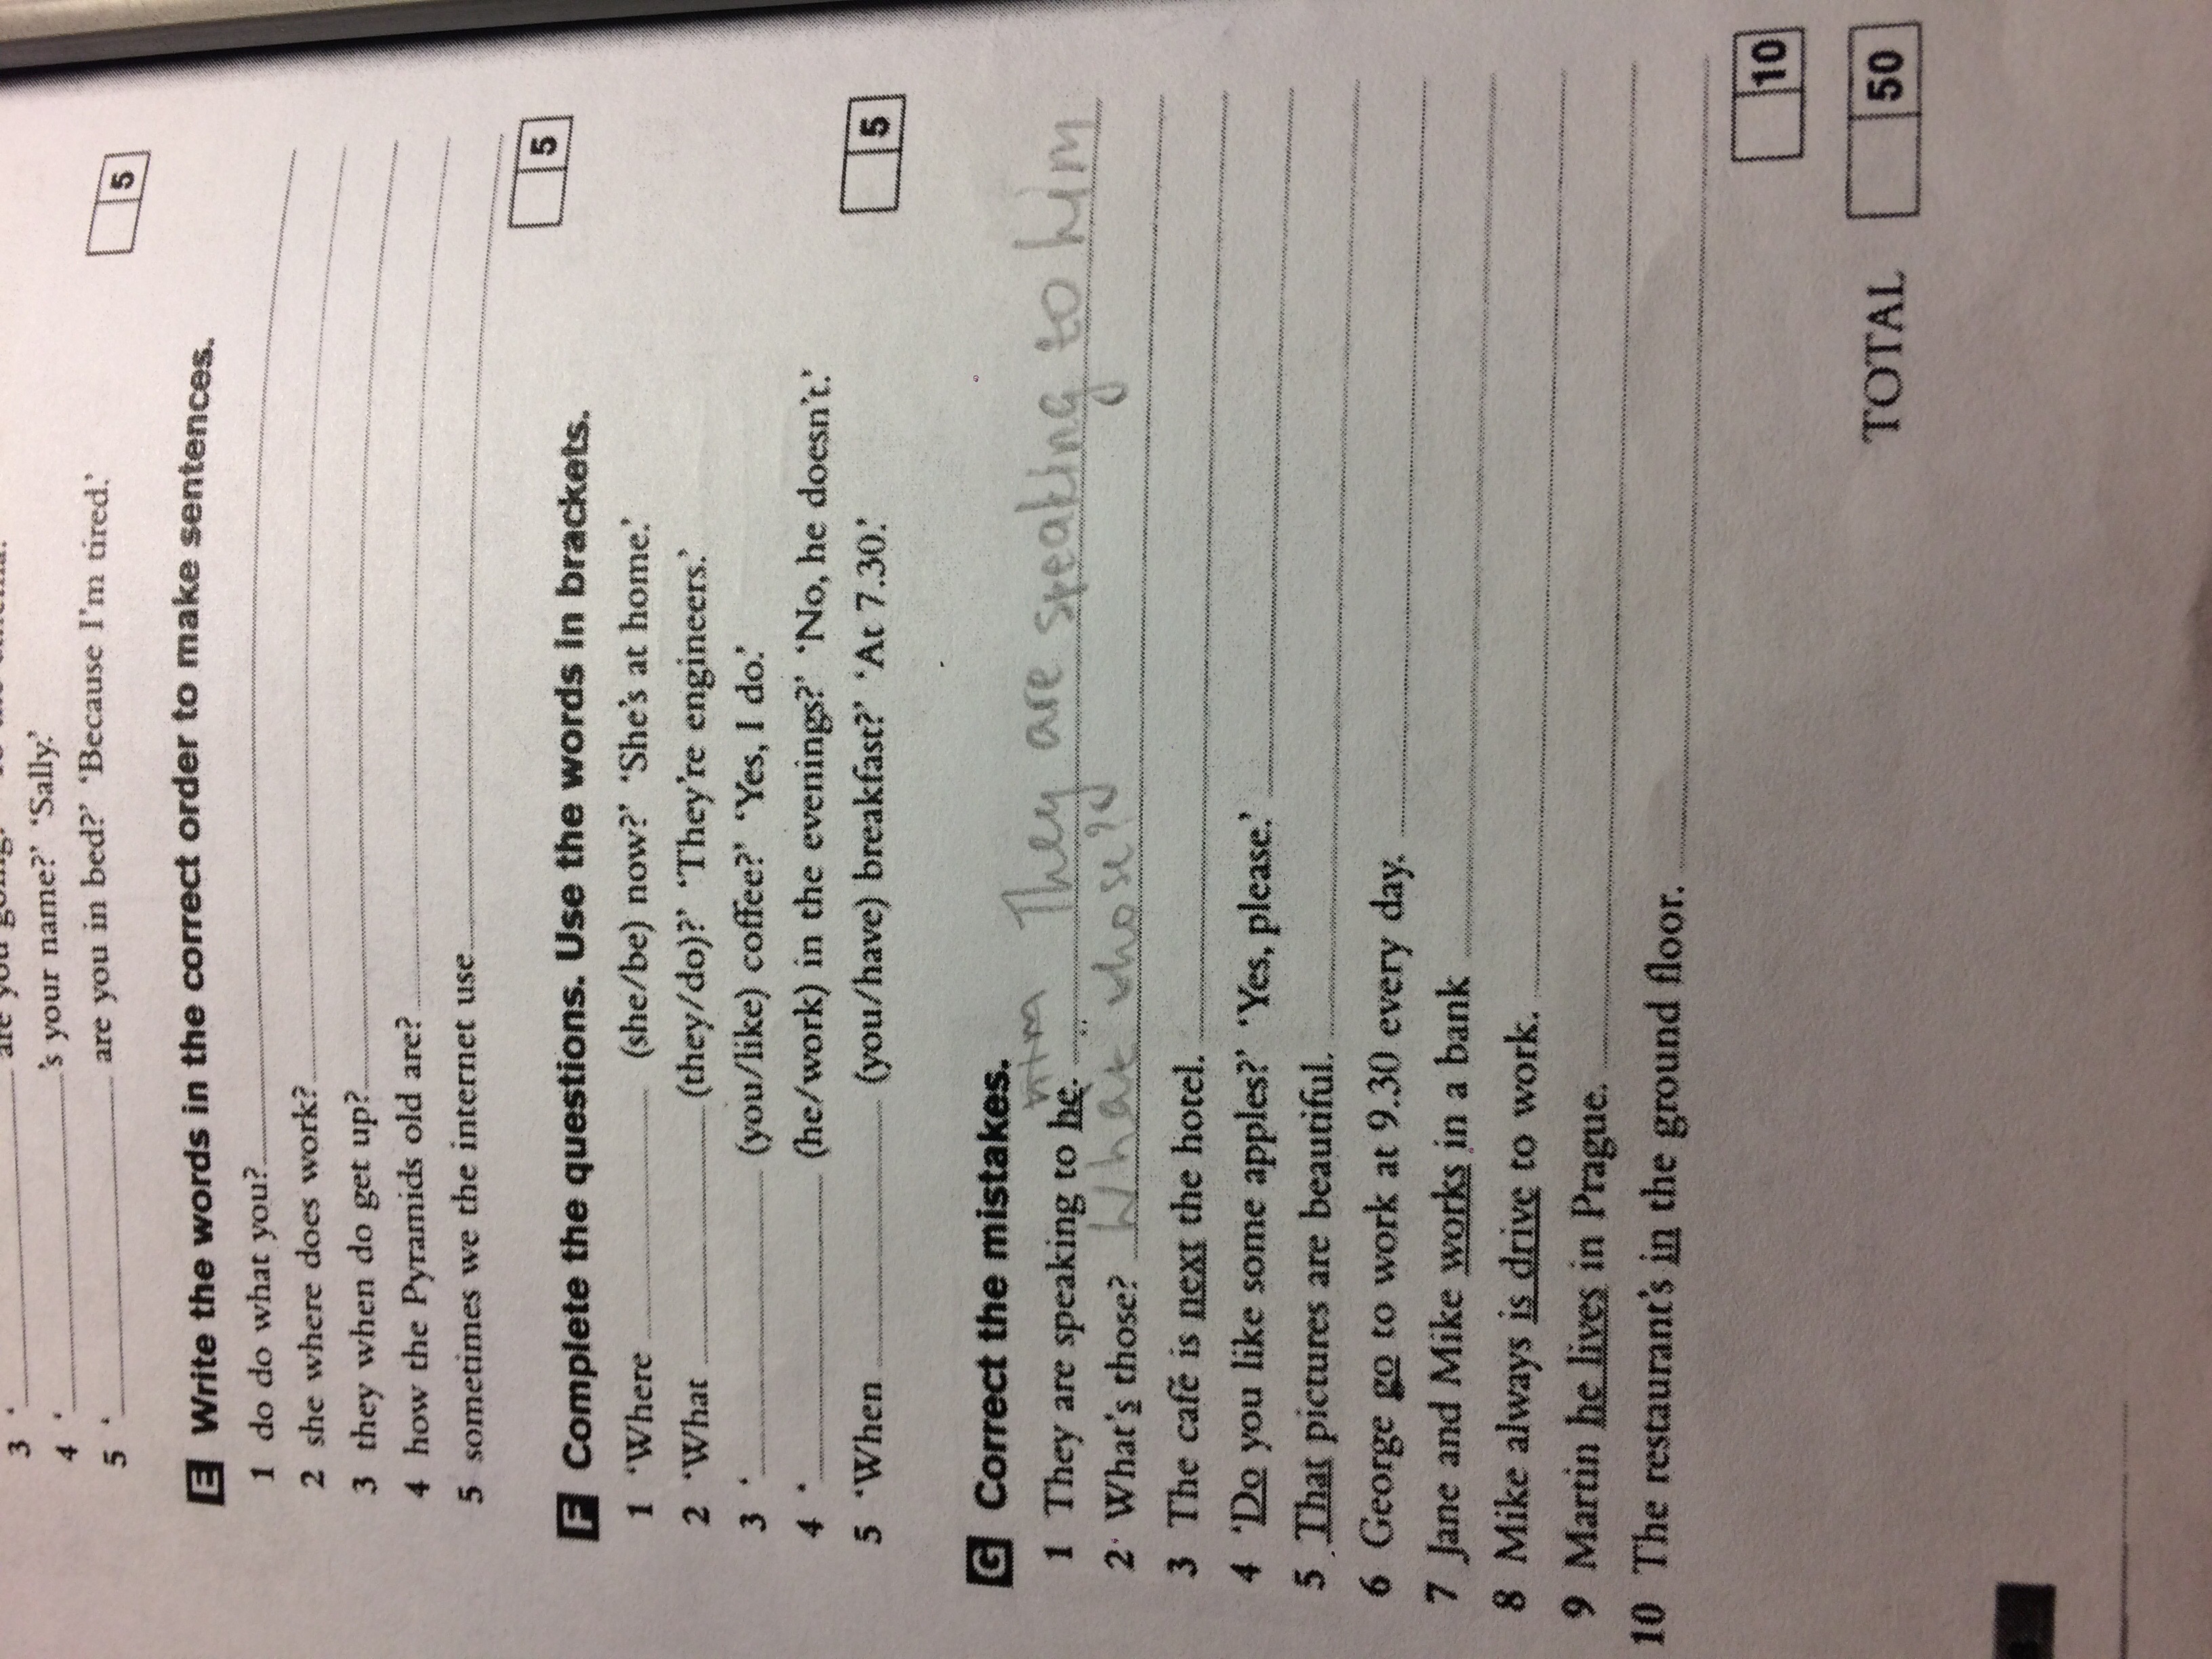 3 '
are you going?
4 ' 's your name?' 'Sally.'
5 ' are you in bed?' 'Because I'm tired.'
5
E Write the words in the correct order to make sentences.
1 do do what you?
2 she where does work?
3 they when do get up?
4 how the Pyramids old are?
5 sometimes we the internet use
5
F Complete the questions. Use the words in brackets.
1 'Where (she/be) now?' 'She's at home.'
2 'What (they/do)?' 'They're engineers.'
3 ' (you/like) coffee?' 'Yes, I do.'
4 ' (he/work) in the evenings?' 'No, he doesn't.'
5 'When (you/have) breakfast?' 'At 7.30.'
5
G Correct the mistakes.
1 They are speaking to he. They are speaking to him
2 What's those? What whose?
3 The café is next the hotel.
4 'Do you like some apples?' 'Yes, please.'
5 That pictures are beautiful.
6 George go to work at 9.30 every day.
7 Jane and Mike works in a bank
8 Mike always is drive to work.
9 Martin he lives in Prague.
10 The restaurant's in the ground floor.
10
TOTAL 50